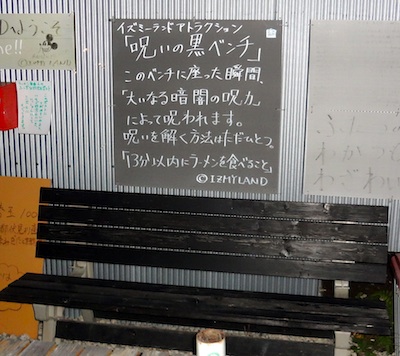 ようこそ
イズミーランドアトラクション
「呪いの黒ベンチ」
このベンチに座った瞬間、
「大いなる暗闇の呪力」
によって呪われます。
呪いを解く方法はただひとつ。
「13分以内にラーメンを食べること」
©IZMYLAND
ふたつ
わかつも
わざれ